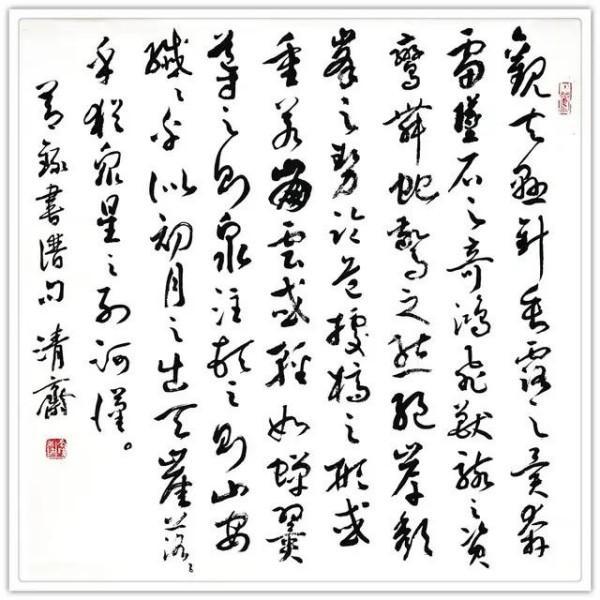 觀夫懸針垂露之異奔
雷墜石之奇鴻飛獸駭之資
鸞舞蛇驚之態絕岸頹
峯之勢臨危據槁之形或
重若崩雲或輕如蟬翼
導之則泉注頓之則山安
纖〻乎似初月之出天崖落〻
乎猶眾星之列河漢。
節錄書譜句 清齋